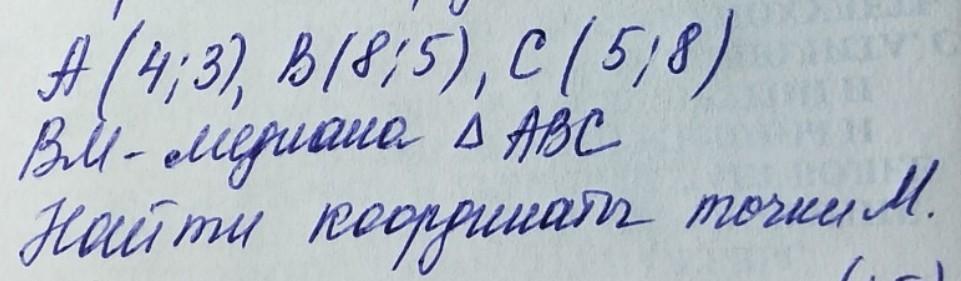 A(4;3), B(8;5), C(5;8)
BM - медиана △ ABC
Найти координаты точки M.